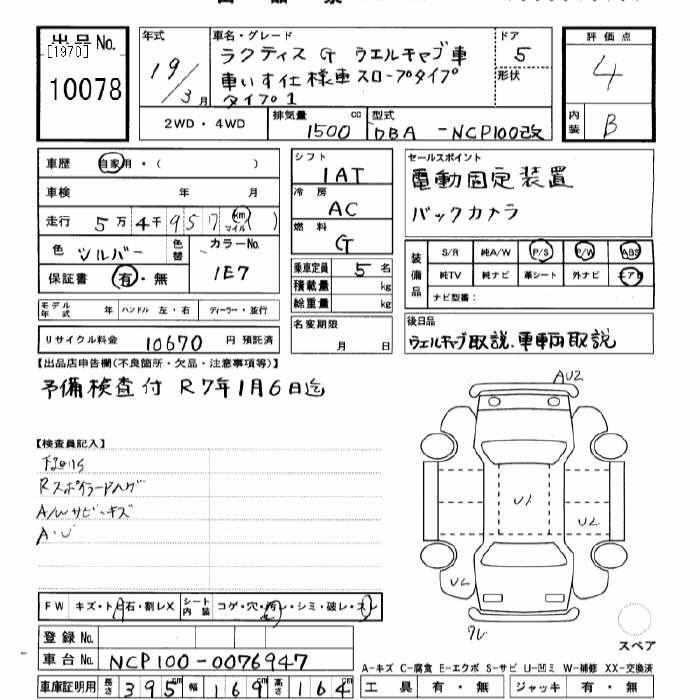 出品No.
[1970]
10078
年式
19/3月
車名・グレード
ラクティス G ウエルキャブ車
車いす仕様車スロープタイプ
タイプ1
ドア
5
形状
評価点
4
内装
B
2WD・4WD
排気量
1500 cc
型式
DBA-NCP100改
車歴 自家用・( )
車検 年 月
走行 5万4千957 km マイル ( )
色 シルバー 色替
カラーNo.
1E7
保証書 有・無
モデル年式 年 ハンドル 左・右 ディーラー・並行
リサイクル料金 10670 円 預託済
シフト
IAT
冷房
AC
燃料
G
乗車定員 5名
積載量 kg
総重量 kg
名変期限
月 日
セールスポイント
電動固定装置
バックカメラ
装備品
S/R 純A/W P/S P/W ABS
純TV 純ナビ 革シート 外ナビ エアB
ナビ型番:
後日品
ウェルキャブ取説、車輌取説
【出品店申告欄(不良箇所・欠品・注意事項等)】
予備検査付 R7年1月6日迄
【検査員記入】
Rスポイラーハゲ
A/Wサビ・キズ
A・U
AU2
U1
U2
UL
ワレ
スペア
FW キズ・ト石・割レX シート内装 コゲ・穴・汚レ・シミ・破レ・スレ
登録No.
車台No. NCP100-0076947
車庫証明用 長さ 395cm 幅 169cm 高さ 164cm
A-キズ C-腐食 E-エクボ S-サビ U-凹ミ W-補修 XX-交換済
工具 有・無 ジャッキ 有・無